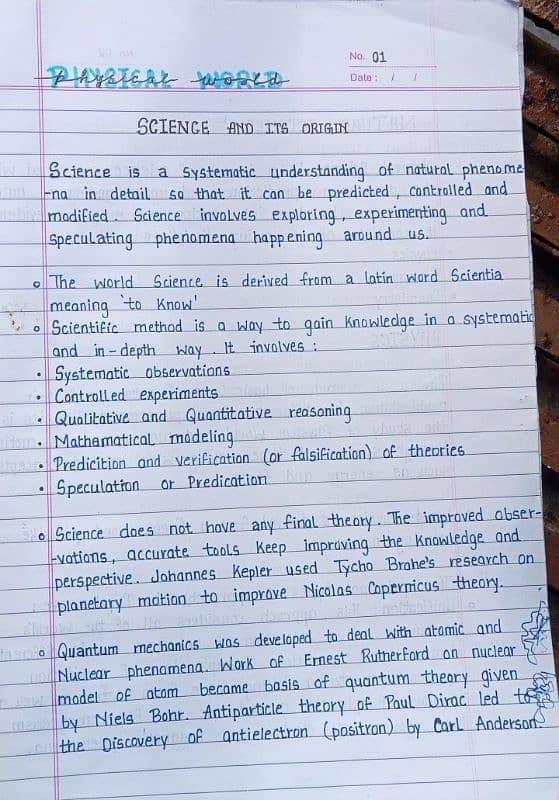 No. 01
PHYSICAL WORLD
Physical world
Date: / /
SCIENCE AND ITS ORIGIN
Science is a systematic understanding of natural phenome
-na in detail so that it can be predicted, controlled and
modified. Science involves exploring, experimenting and
speculating phenomena happening around us.
The world Science is derived from a latin word Scientia
meaning 'to Know'
Scientific method is a way to gain Knowledge in a systematic
and in-depth way. It involves:
• Systematic observations
• Controlled experiments
• Qualitative and Quantitative reasoning
• Mathamatical modeling
• Predicition and verification (or falsification) of theories
• Speculation or Predication
Science does not have any final theory. The improved obser-
-vations, accurate tools Keep improving the Knowledge and
perspective. Johannes Kepler used Tycho Brahe's research on
planetary motion to improve Nicolas Copernicus theory.
Quantum mechanics was developed to deal with atomic and
Nuclear phenomena. Work of Ernest Rutherford on nuclear
model of atom became basis of quantum theory given
by Niels Bohr. Antiparticle theory of Paul Dirac led to
the Discovery of antielectron (positron) by Carl Anderson.